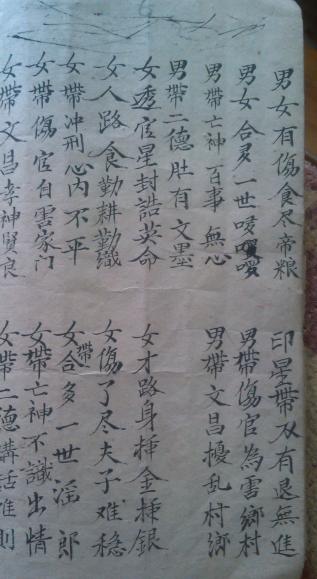 男女有傷食尽帝粮
印星帶刄有退無進
男女合多一世嗳嗳嗳
男帶傷官為害鄉村
男帶亡神百事無心
男帶文昌擾乱村鄉
男帶二德肚有文墨
女透官星封誥英命
女才路身插金插銀
女人路食勤耕勤織
女傷了尽夫子难穩
女帶冲刑心内不平
女帶合多一世滛郎
女帶傷官自害家门
女帶亡神不識出情
女帶文昌孝神賢良
女帶二德講话准則